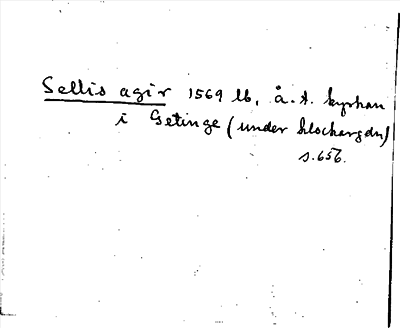 Sellis agir 1569 lb, å.t. kyrkan
i Getinge (under klockargdn)
s.656.